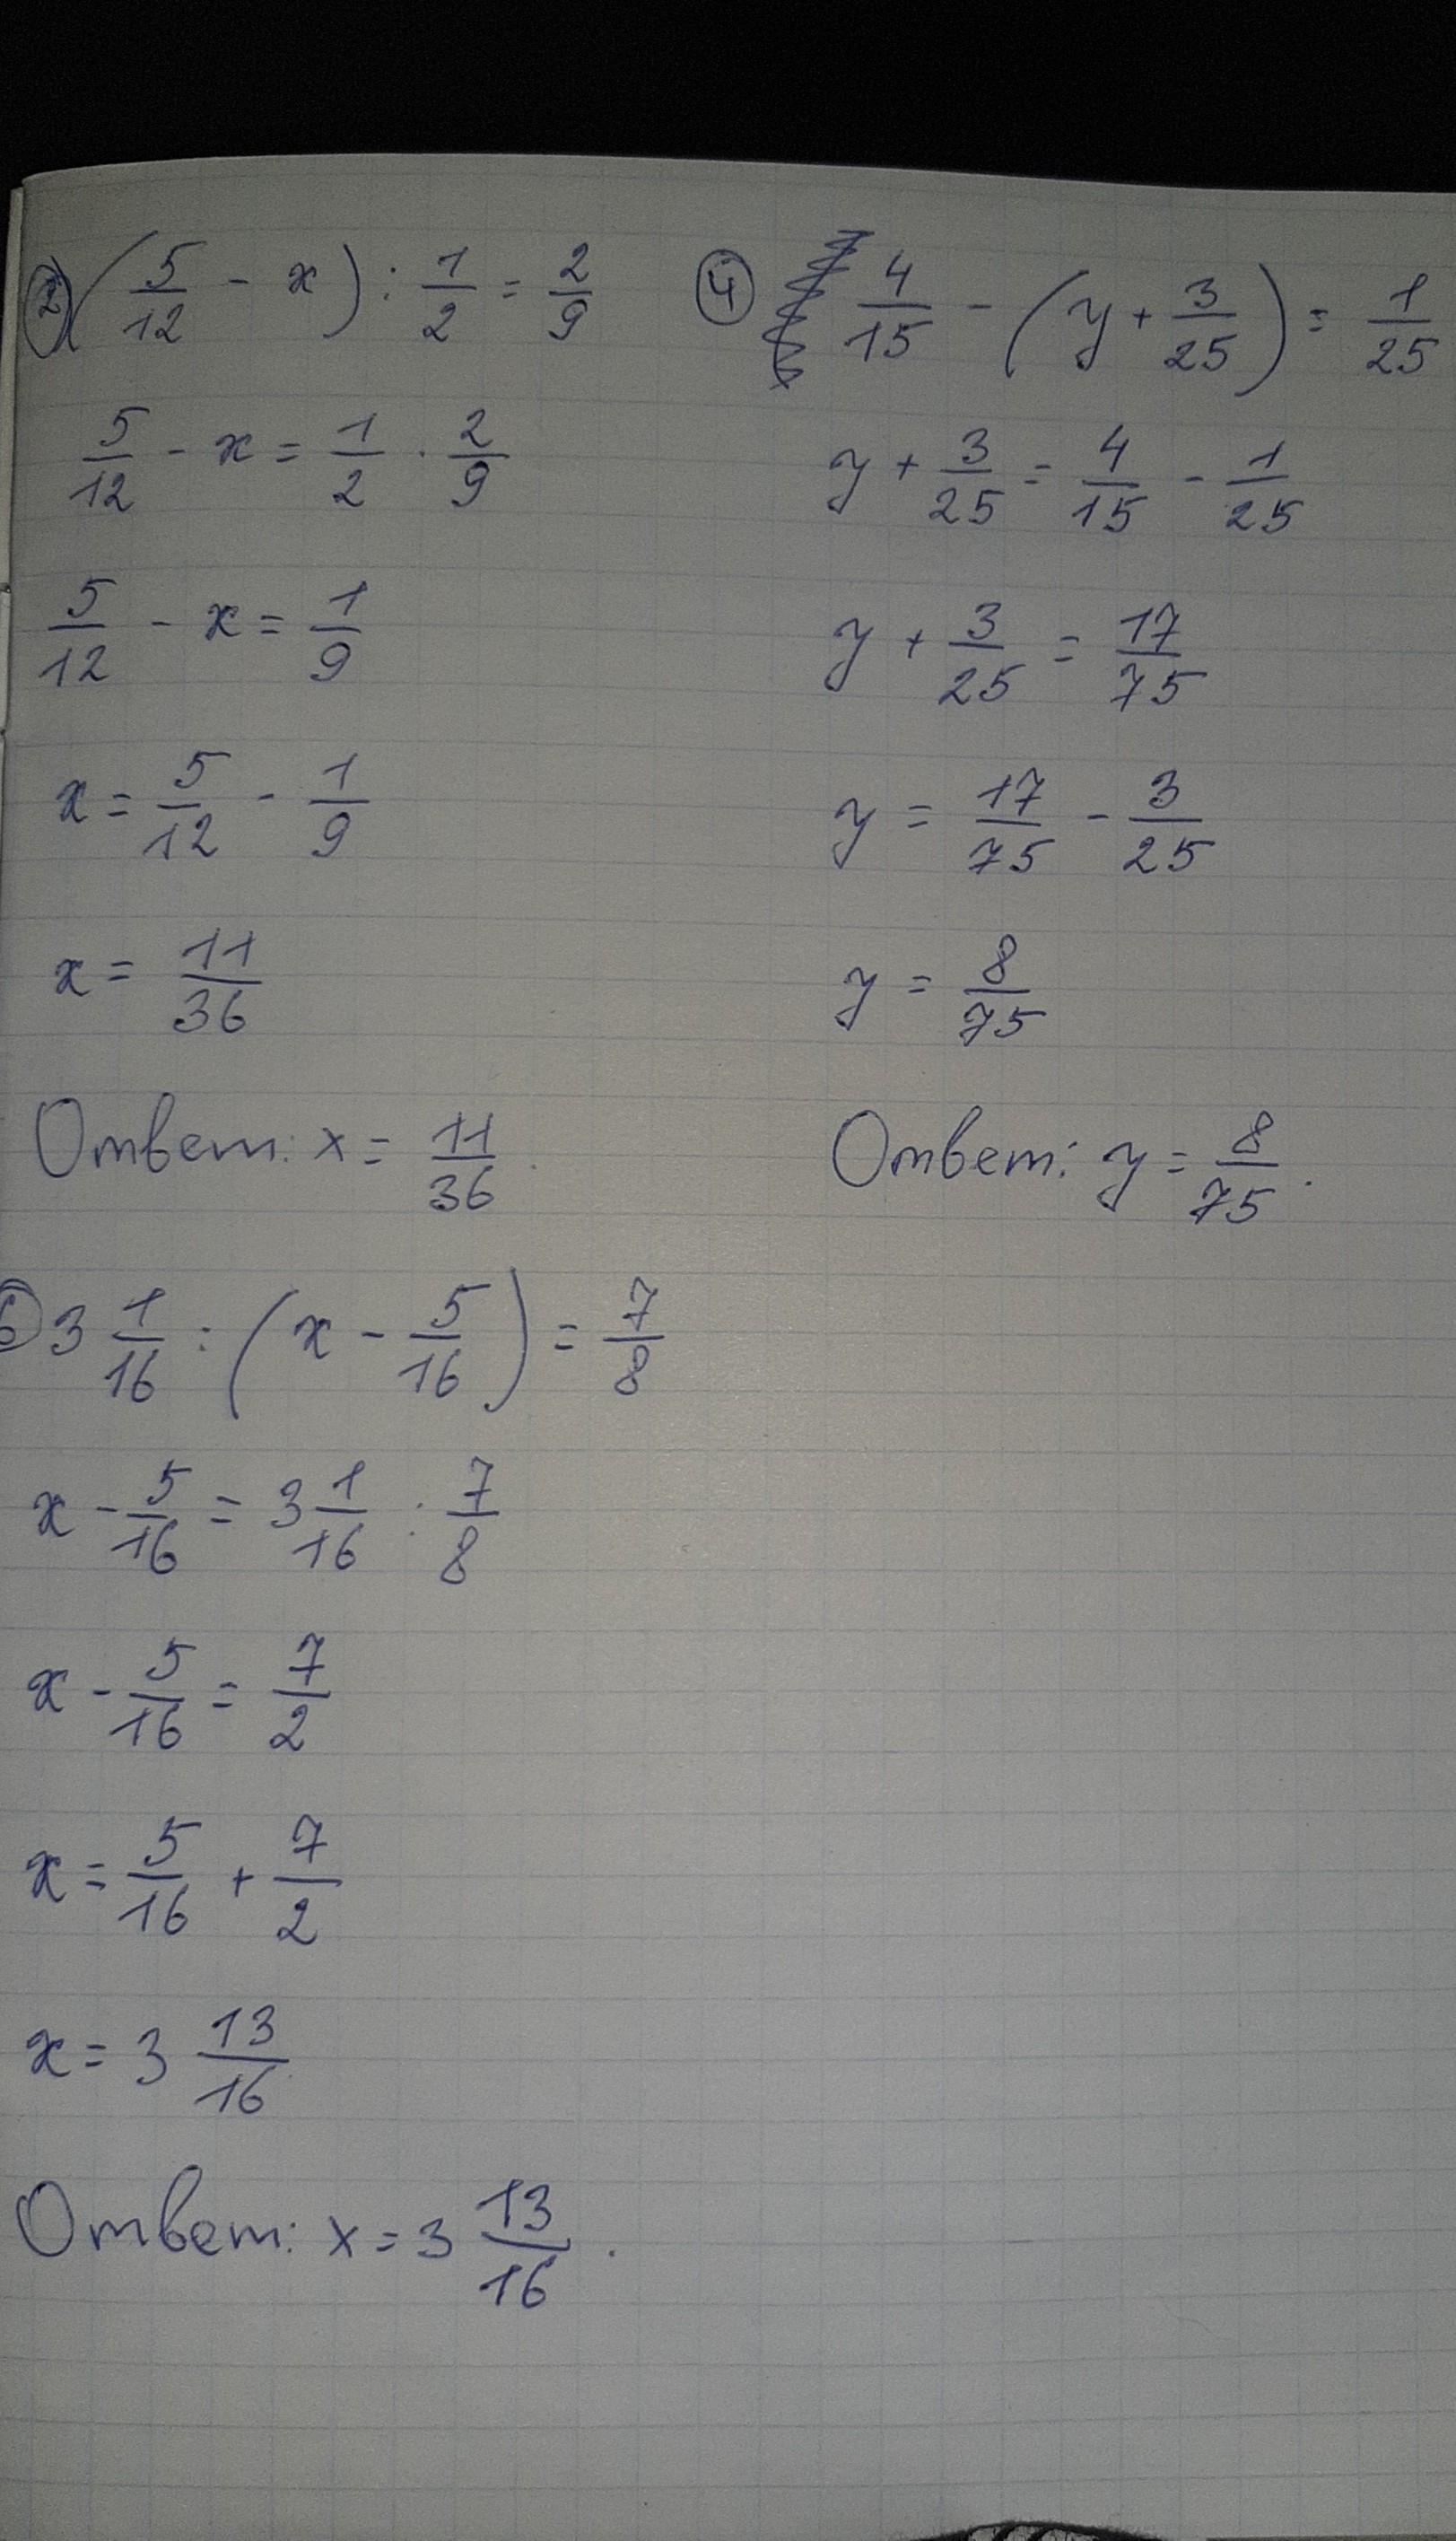 ② (5/12 - x) : 1/2 = 2/9
5/12 - x = 1/2 · 2/9
5/12 - x = 1/9
x = 5/12 - 1/9
x = 11/36
Ответ: x = 11/36.
④ 4/15 - (y + 3/25) = 1/25
y + 3/25 = 4/15 - 1/25
y + 3/25 = 17/75
y = 17/75 - 3/25
y = 8/75
Ответ: y = 8/75.
⑥ 3 1/16 : (x - 5/16) = 7/8
x - 5/16 = 3 1/16 : 7/8
x - 5/16 = 7/2
x = 5/16 + 7/2
x = 3 13/16
Ответ: x = 3 13/16.